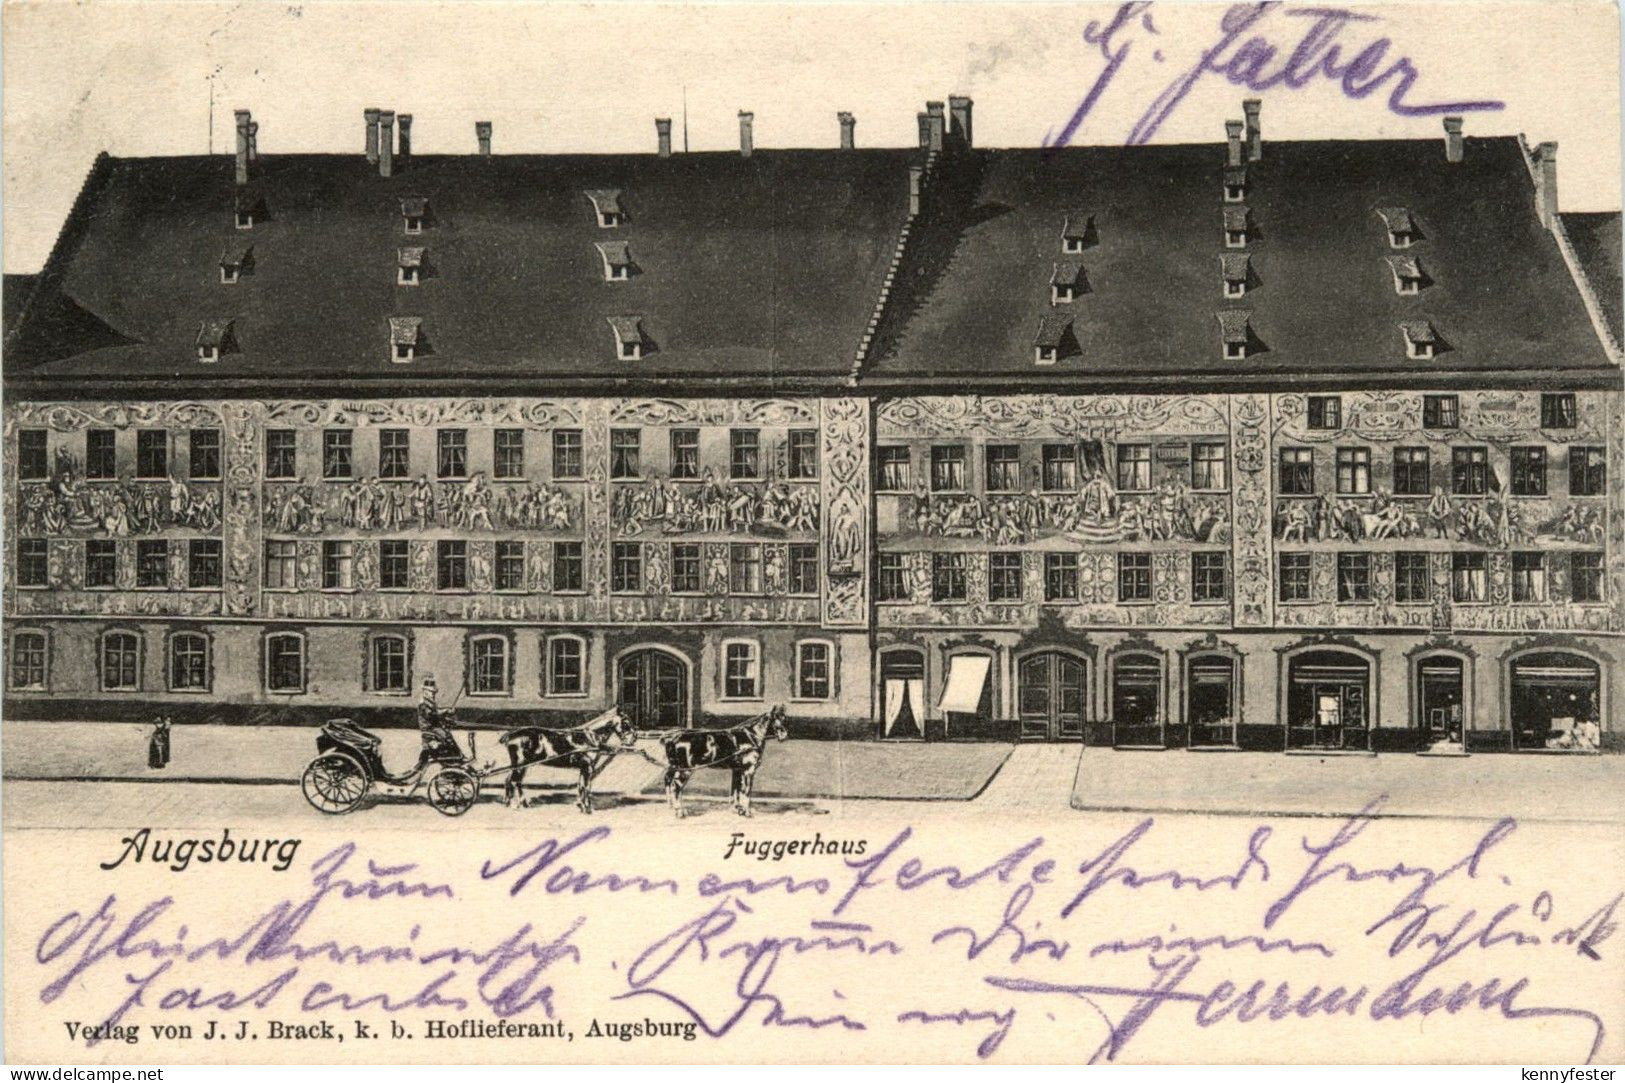 Lj. Faber
Augsburg
Fuggerhaus
Zum Namensfeste send. herzl.
Glückwünsche. Komm Dir einen Schluck
Fastenbier Dein erg. Herrmann
Verlag von J. J. Brack, k. b. Hoflieferant, Augsburg
www.delcampe.net
kennyfester